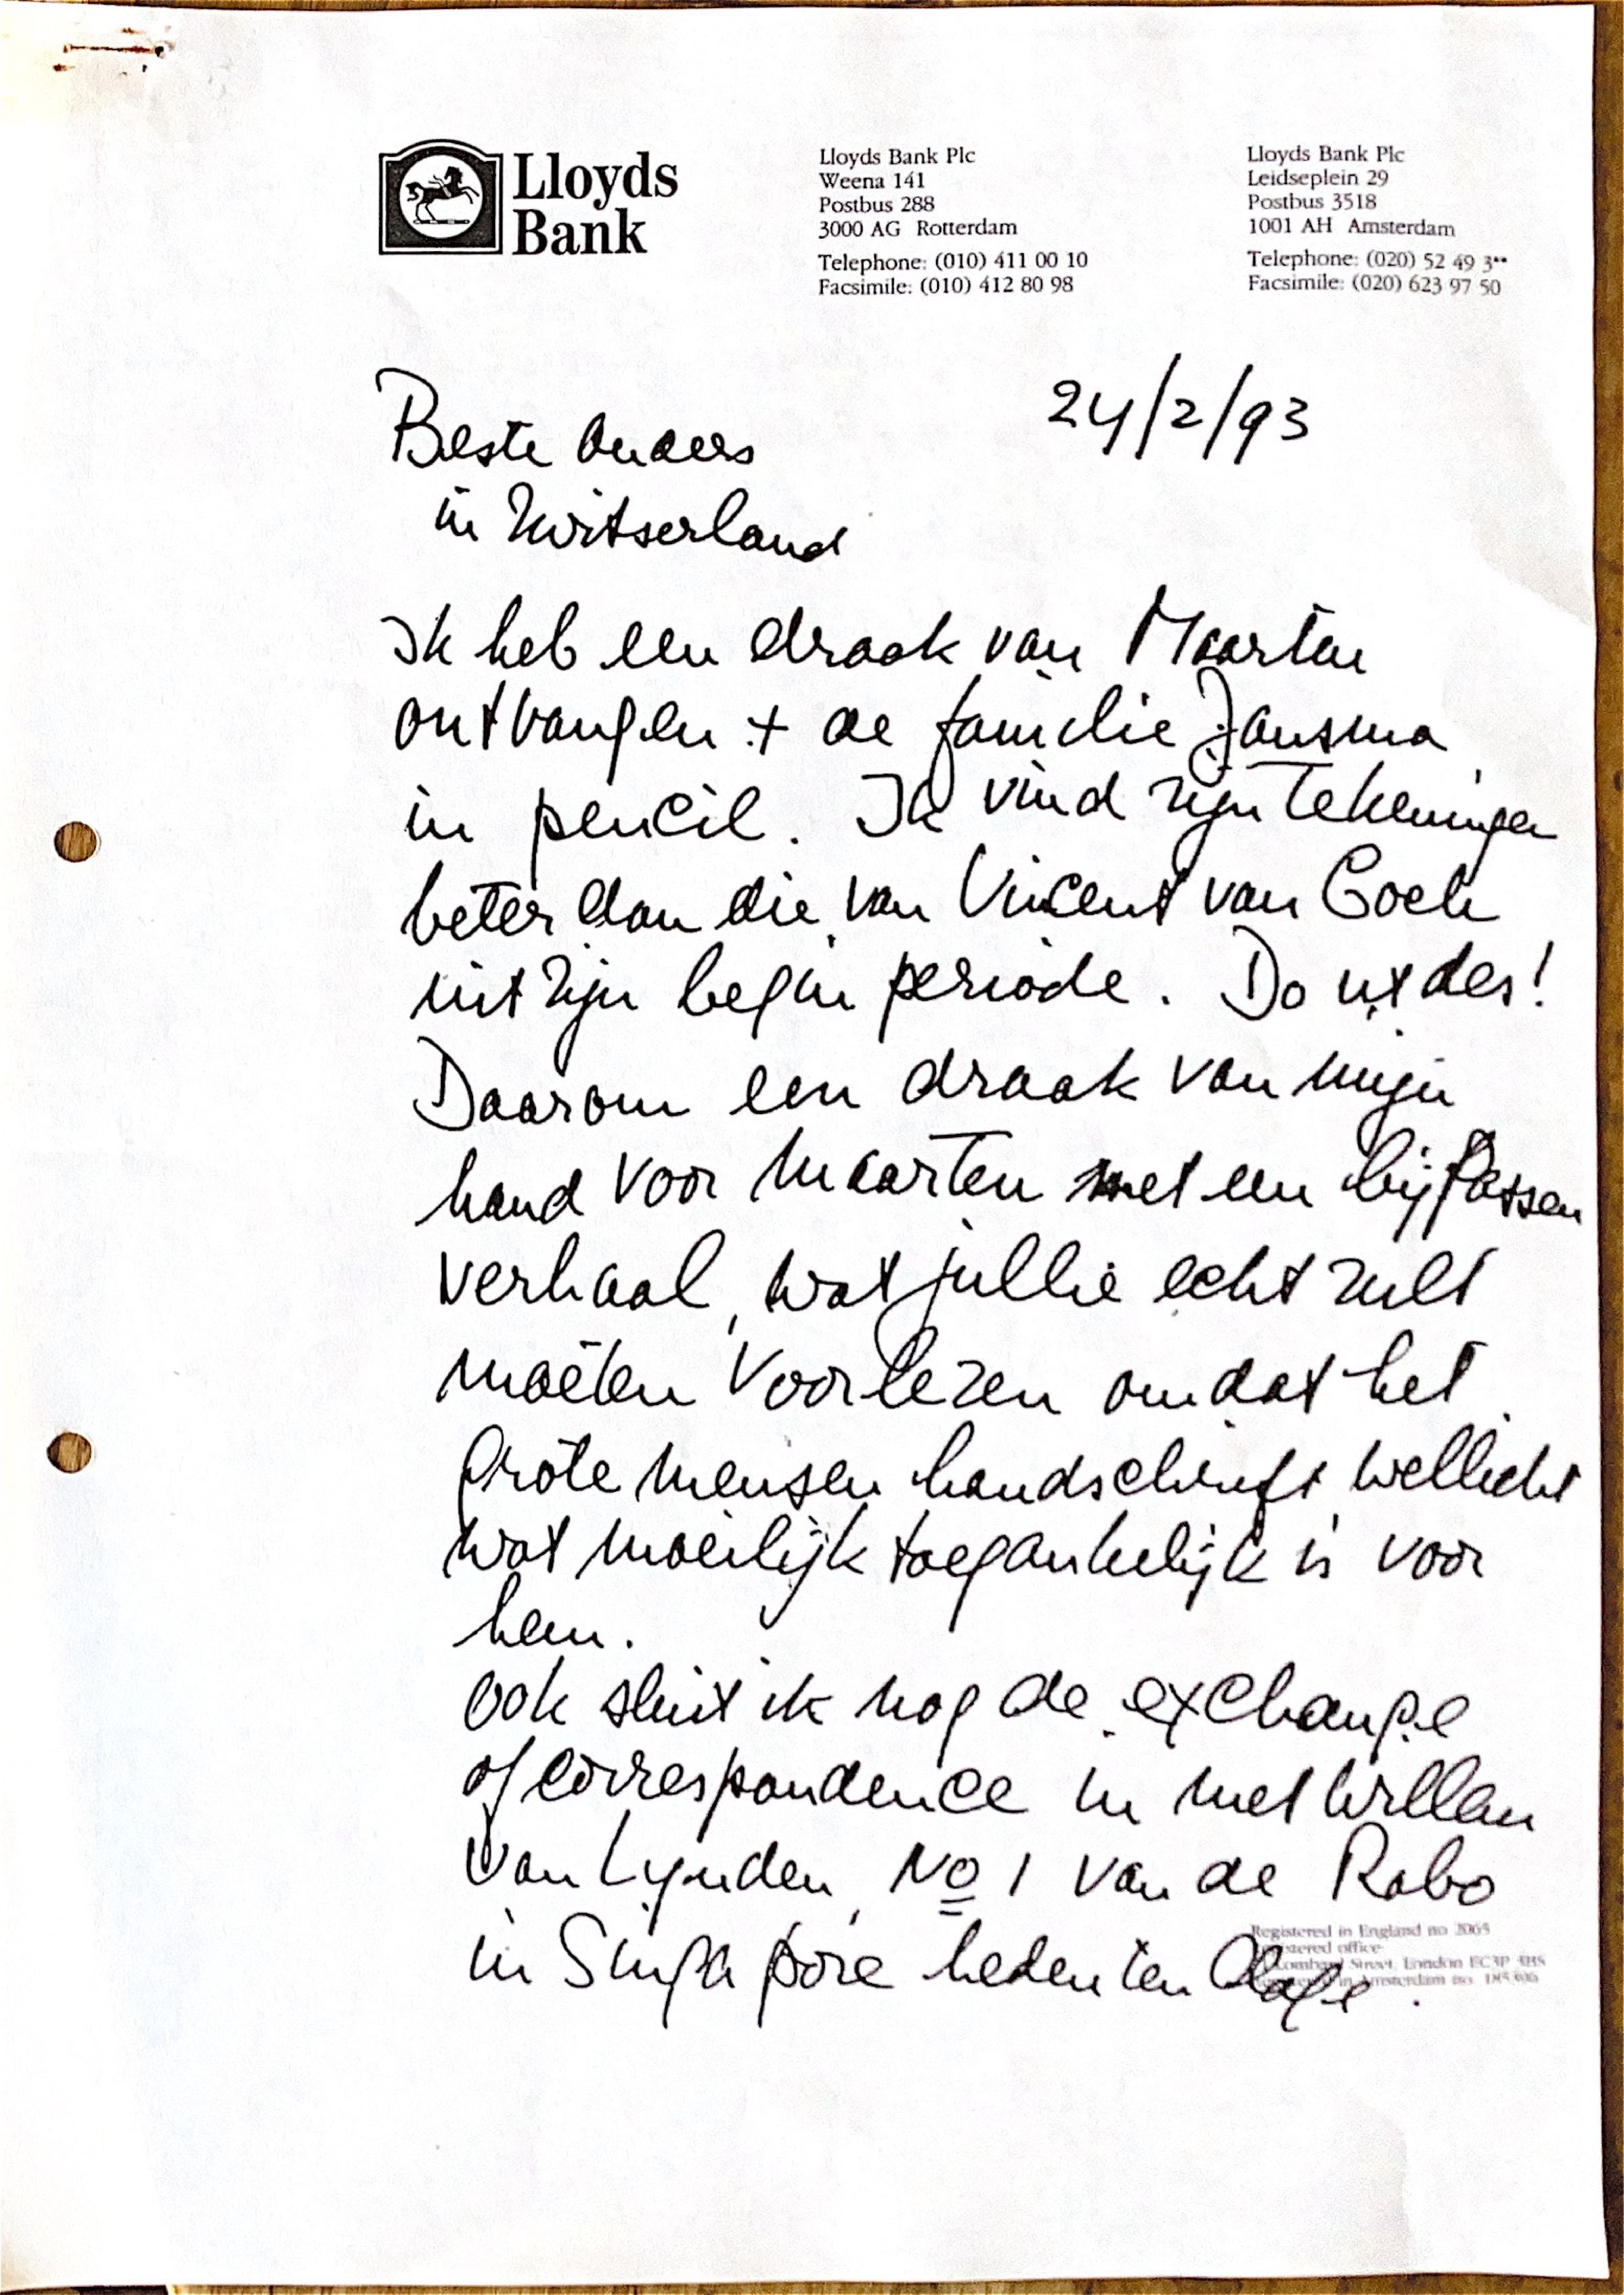 Lloyds
Bank
Lloyds Bank Plc
Weena 141
Postbus 288
3000 AG Rotterdam
Telephone: (010) 411 00 10
Facsimile: (010) 412 80 98
Lloyds Bank Plc
Leidseplein 29
Postbus 3518
1001 AH Amsterdam
Telephone: (020) 52 49 3**
Facsimile: (020) 623 97 50
24/2/93
Beste Ouders
in Zwitserland
Ik heb een draak van Maarten
ontvangen + de familie Jansma
in pencil. Ik vind zijn tekeningen
beter dan die van Vincent van Goch
uit zijn begin periode. Do ut des!
Daarom een draak van mijn
hand voor Maarten met een bijpassen
verhaal, wat jullie echt zult
moeten voorlezen omdat het
grote mensen handschrift wellicht
wat moeilijk toegankelijk is voor
hem.
Ook sluit ik nog de exchange
of correspondence in met Willem
van Lynden, No 1 van de Rabo
in Singapore heden ten dage.
Registered in England no 2065
office
Street, London EC3P
in Amsterdam no